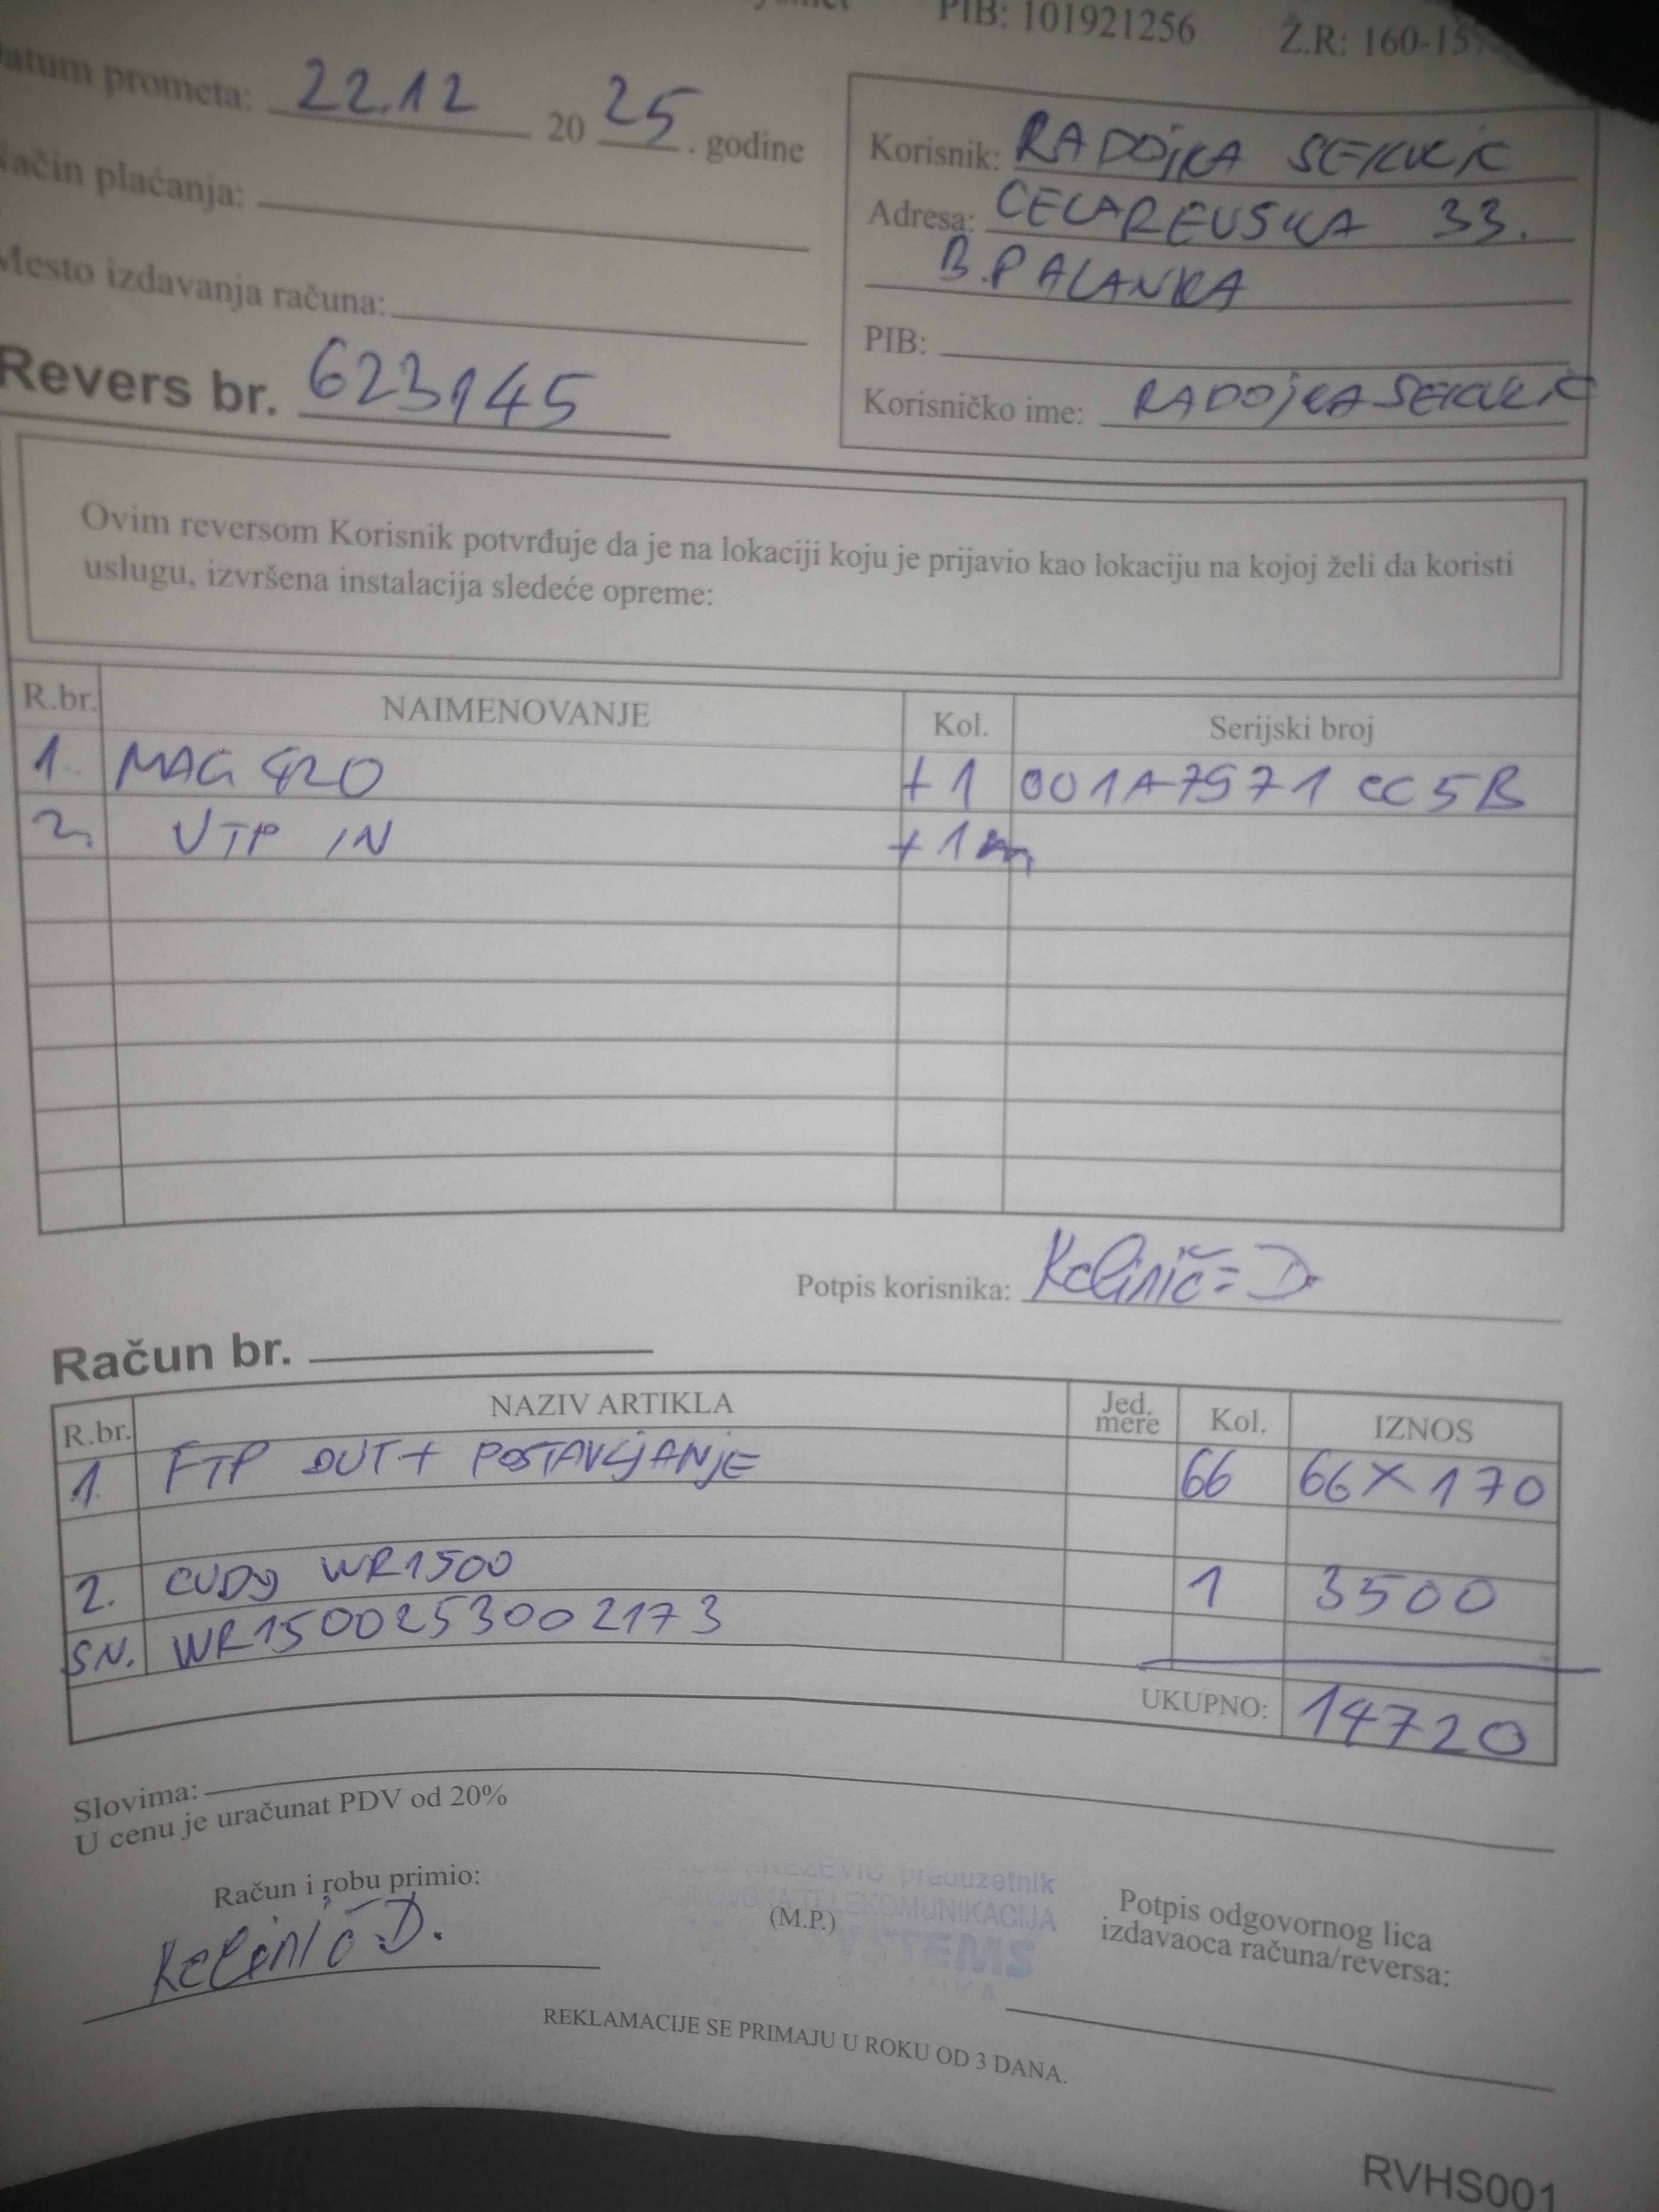 PIB: 101921256
Ž.R: 160-15
atum prometa: 22.12 2025. godine
ačin plaćanja:
Mesto izdavanja računa:
Revers br. 623145
Korisnik: RADOjKA SEKULIĆ
Adresa: CELAREVSKA 33.
B.PALANKA
PIB:
Korisničko ime: RADOjKASEKULIC
Ovim reversom Korisnik potvrđuje da je na lokaciji koju je prijavio kao lokaciju na kojoj želi da koristi
uslugu, izvršena instalacija sledeće opreme:
R.br. NAIMENOVANJE Kol. Serijski broj
1. MAG 420 +1 001A7971CC5B
2. UTP IN +1m
Potpis korisnika:
Račun br.
R.br. NAZIV ARTIKLA Jed. mere Kol. IZNOS
1. FTP OUT+ POSTAVLjANjE 66 66X170
2. CUDY WR1500 1 3500
SN. WR1500253002173
UKUPNO: 14720
Slovima:
U cenu je uračunat PDV od 20%
Račun i robu primio:
KNEZEVIC preduzetnik
TELEKOMUNIKACIJA
(M.P.)
SYSTEMS
Potpis odgovornog lica
izdavaoca računa/reversa:
REKLAMACIJE SE PRIMAJU U ROKU OD 3 DANA.
RVHS001